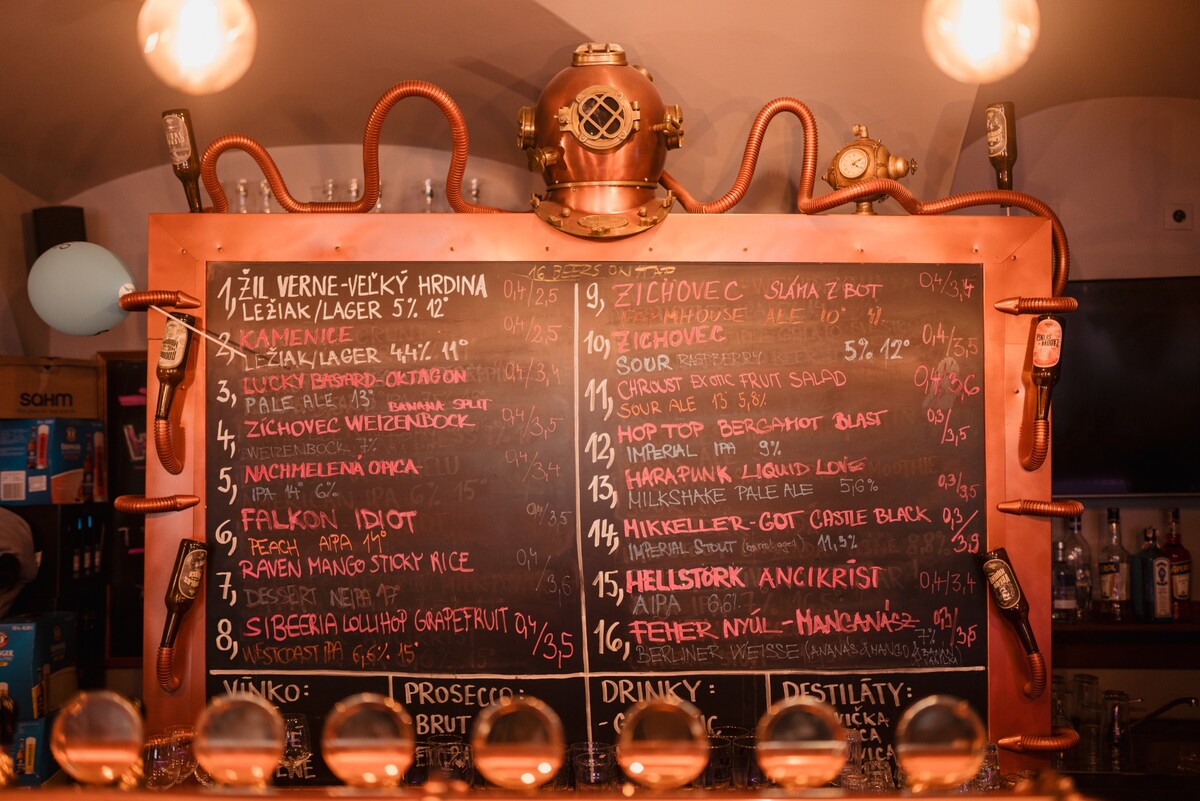 16 BEERS ON TAP
1, ŽIL VERNE-VEĽKÝ HRDINA 0,4/2,5
LEŽIAK/LAGER 5% 12°
2, KAMENICE 0,4/2,5
LEŽIAK/LAGER 4,4% 11°
3, LUCKY BASTARD-OKTAGON 0,4/3,4
PALE ALE 13° BANANA SPLIT
4, ZICHOVEC WEIZENBOCK 0,4/3,5
WEIZENBOCK 7%
5, NACHMELENÁ OPICA 0,4/3,4
IPA 14° 6%
6, FALKON IDIOT 0,4/3,5
PEACH AIPA 14°
7, RAVEN MANGO STICKY RICE 0,4/3,6
DESSERT NEIPA 17°
8, SIBEERIA LOLLIHOP GRAPEFRUIT 0,4/3,5
WESTCOAST IPA 6,6% 15°
9, ZICHOVEC SLÁMA Z BOT 0,4/3,4
FARMHOUSE ALE 10° 4%
10, ZICHOVEC 0,4/3,5
SOUR RASPBERRY 5% 12°
11, CHROUST EXOTIC FRUIT SALAD 0,4/3,6
SOUR ALE 13 5,8%
12, HOP TOP BERGAMOT BLAST 0,3/3,5
IMPERIAL IPA 9%
13, HARAPUNK LIQUID LOVE 0,3/3,5
MILKSHAKE PALE ALE 5,6%
14, MIKKELLER-GOT CASTLE BLACK 0,3/3,9
IMPERIAL STOUT (barrel aged) 11,5%
15, HELLSTÖRK ANCIKRIST 0,4/3,4
AIPA 6,6%
16, FEHER NYÚL-MANCANÁSZ 0,3/3,5
BERLINER WEISSE (ANANÁS & MANGO & 7%
VÍNKO:
PROSECCO:
BRUT
DRINKY:
DESTILÁTY:
SAHM